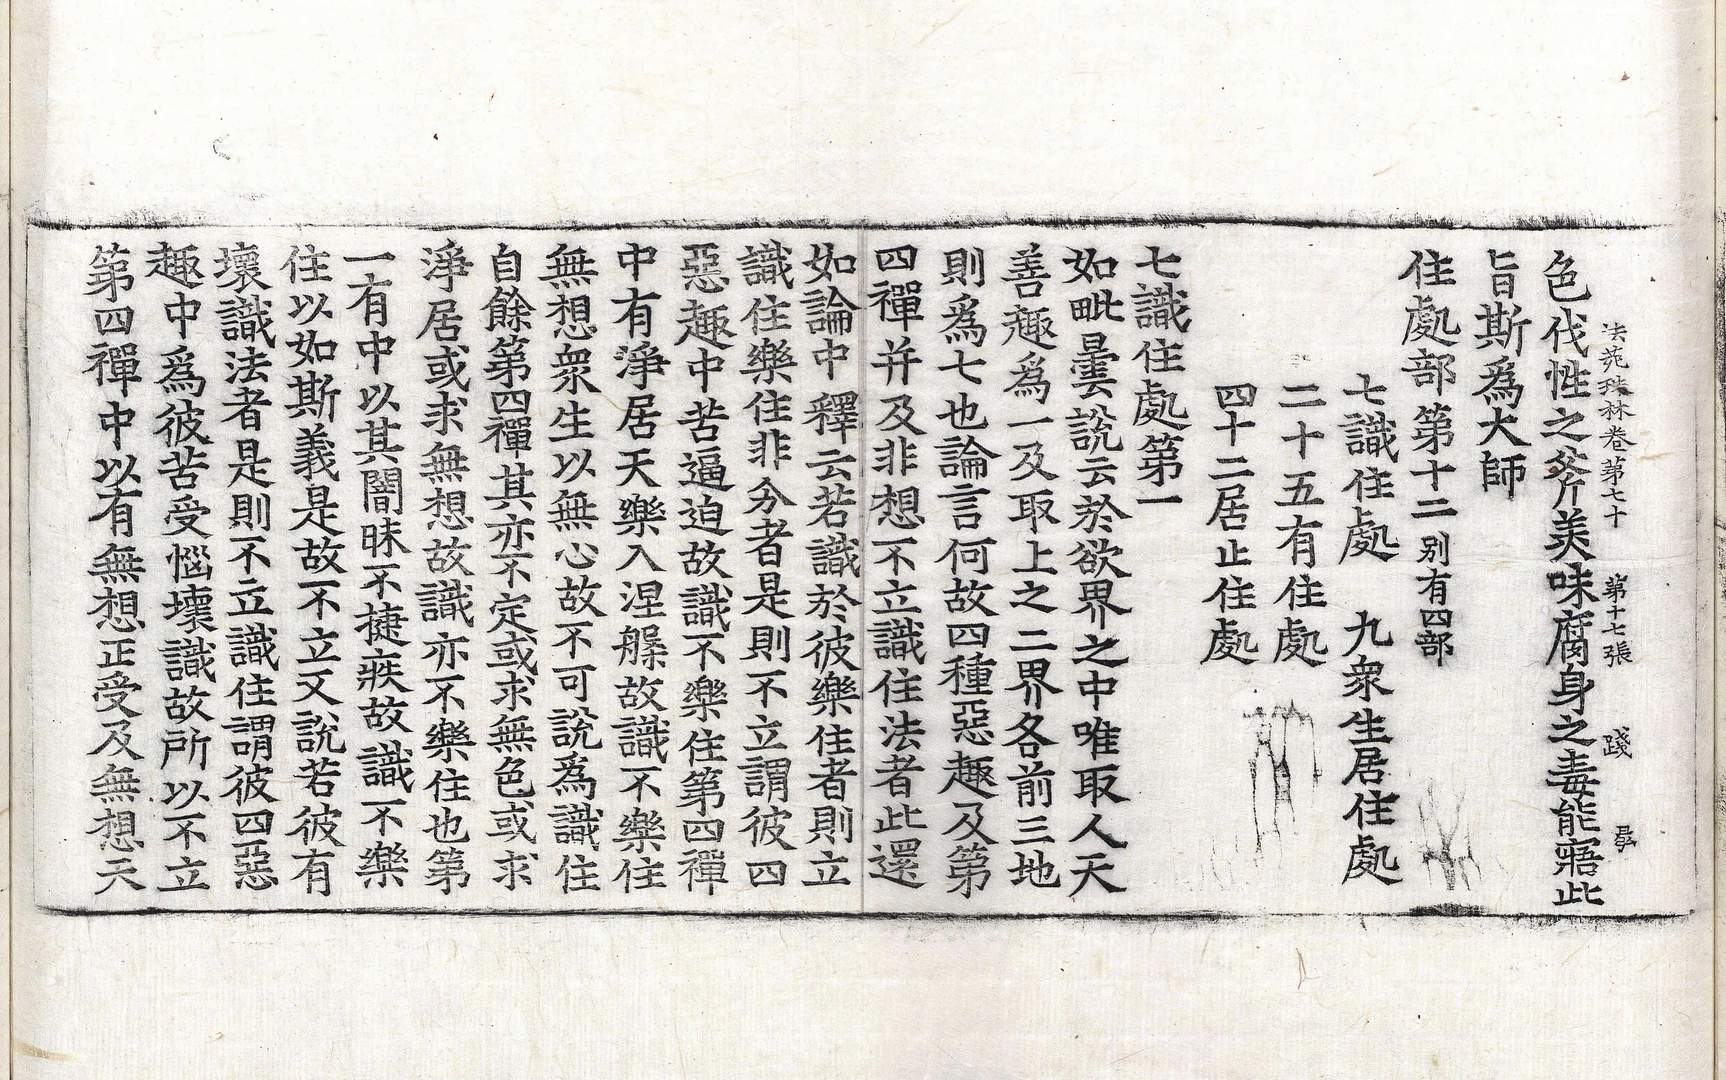 法苑珠林卷第七十 第十七張 踐
色伐性之斧斤美味腐身之毒能寤此
旨斯爲大師
住處部第十二別有四部
七識住處 九衆生居住處
二十五有住處
四十二居止住處
七識住處第一
如毗曇說云於欲界之中唯取人天
善趣爲一及取上之二界各前三地
則爲七也論言何故四種惡趣及第
四禪并及非想不立識住法者此還
如論中釋云若識於彼樂住者則立
識住樂住非分者是則不立謂彼四
惡趣中苦逼迫故識不樂住第四禪
中有淨居天樂入涅槃故識不樂住
無想衆生以無心故不可說爲識住
自餘第四禪其亦不定或求無色或求
淨居或求無想故識亦不樂住也第
一有中以其闇昧不捷疾故識不樂
住以如斯義是故不立又說若彼有
壞識法者是則不立識住謂彼四惡
趣中爲彼苦受惱壞識故所以不立
第四禪中以有無想正受及無想天